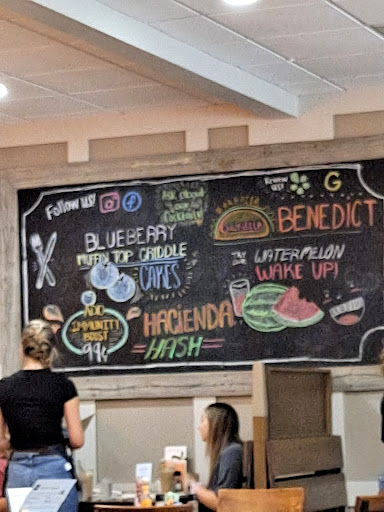 Follow us!
Ask about our Cocktails
Review us!
G
BLUEBERRY
MUFFIN TOP GRIDDLE
CAKES
BARBACOA
CHILAQUILES
BENEDICT
TRY
WATERMELON
WAKE UP!
ADD
IMMUNITY
BOOST
99¢
HACIENDA
HASH